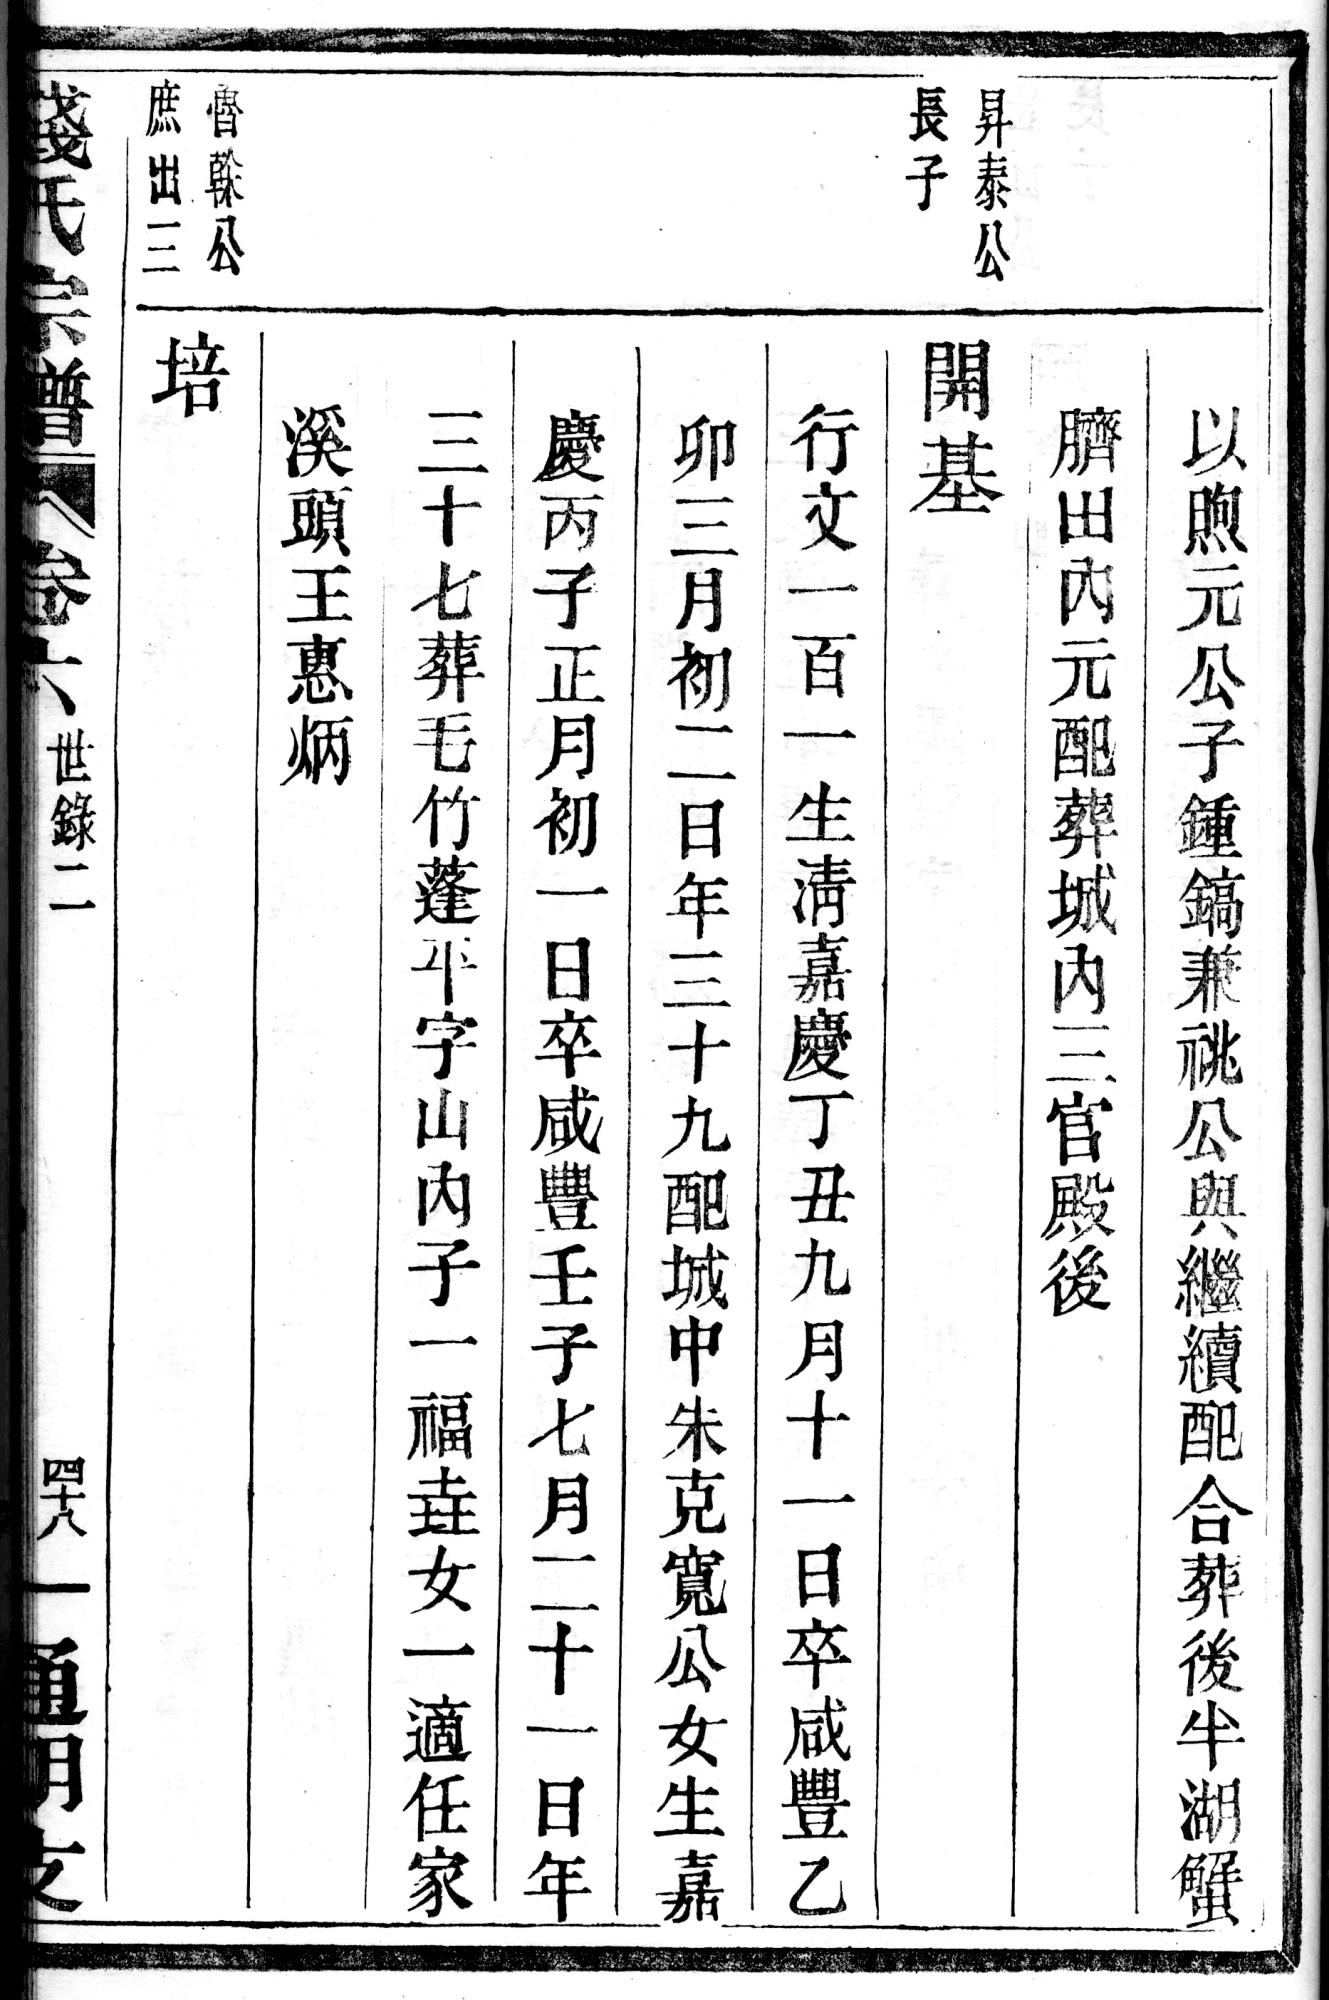 以煦元公子鍾鎬兼祧公與繼續配合葬後半湖蟹
臍田內元配葬城內三官殿後
昇泰公
長子
開基
行文一百一生淸嘉慶丁丑九月十一日卒咸豐乙
卯三月初二日年三十九配城中朱克寬公女生嘉
慶丙子正月初一日卒咸豐壬子七月二十一日年
三十七葬毛竹蓬平字山內子一福垚女一適任家
溪頭王惠炳
魯公
庶出三
培
錢氏宗譜 卷六 世錄二 四十八 通明支